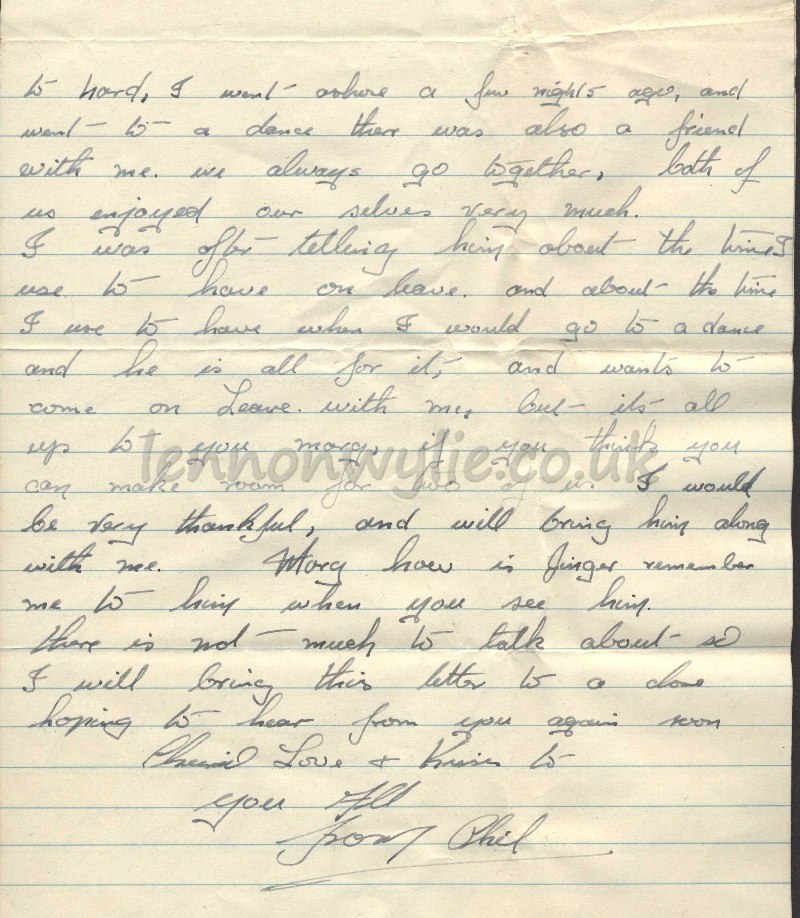 to hard, I went ashore a few nights ago, and
went to a dance there was also a friend
with me. we always go together, both of
us enjoyed our selves very much.
I was after telling him about the time I
use to have on leave. and about the time
I use to have when I would go to a dance
and he is all for it, and wants to
come on Leave. with me, but its all
up to you marg, if you think you
can make room for two of us I would
be very thankful, and will bring him along
with me. Marg how is Jinger remember
me to him when you see him.
there is not much to talk about so
I will bring this letter to a close
hoping to hear from you again soon
Cheerio Love + Kisses to
you All
from Phil
lennonwylie.co.uk